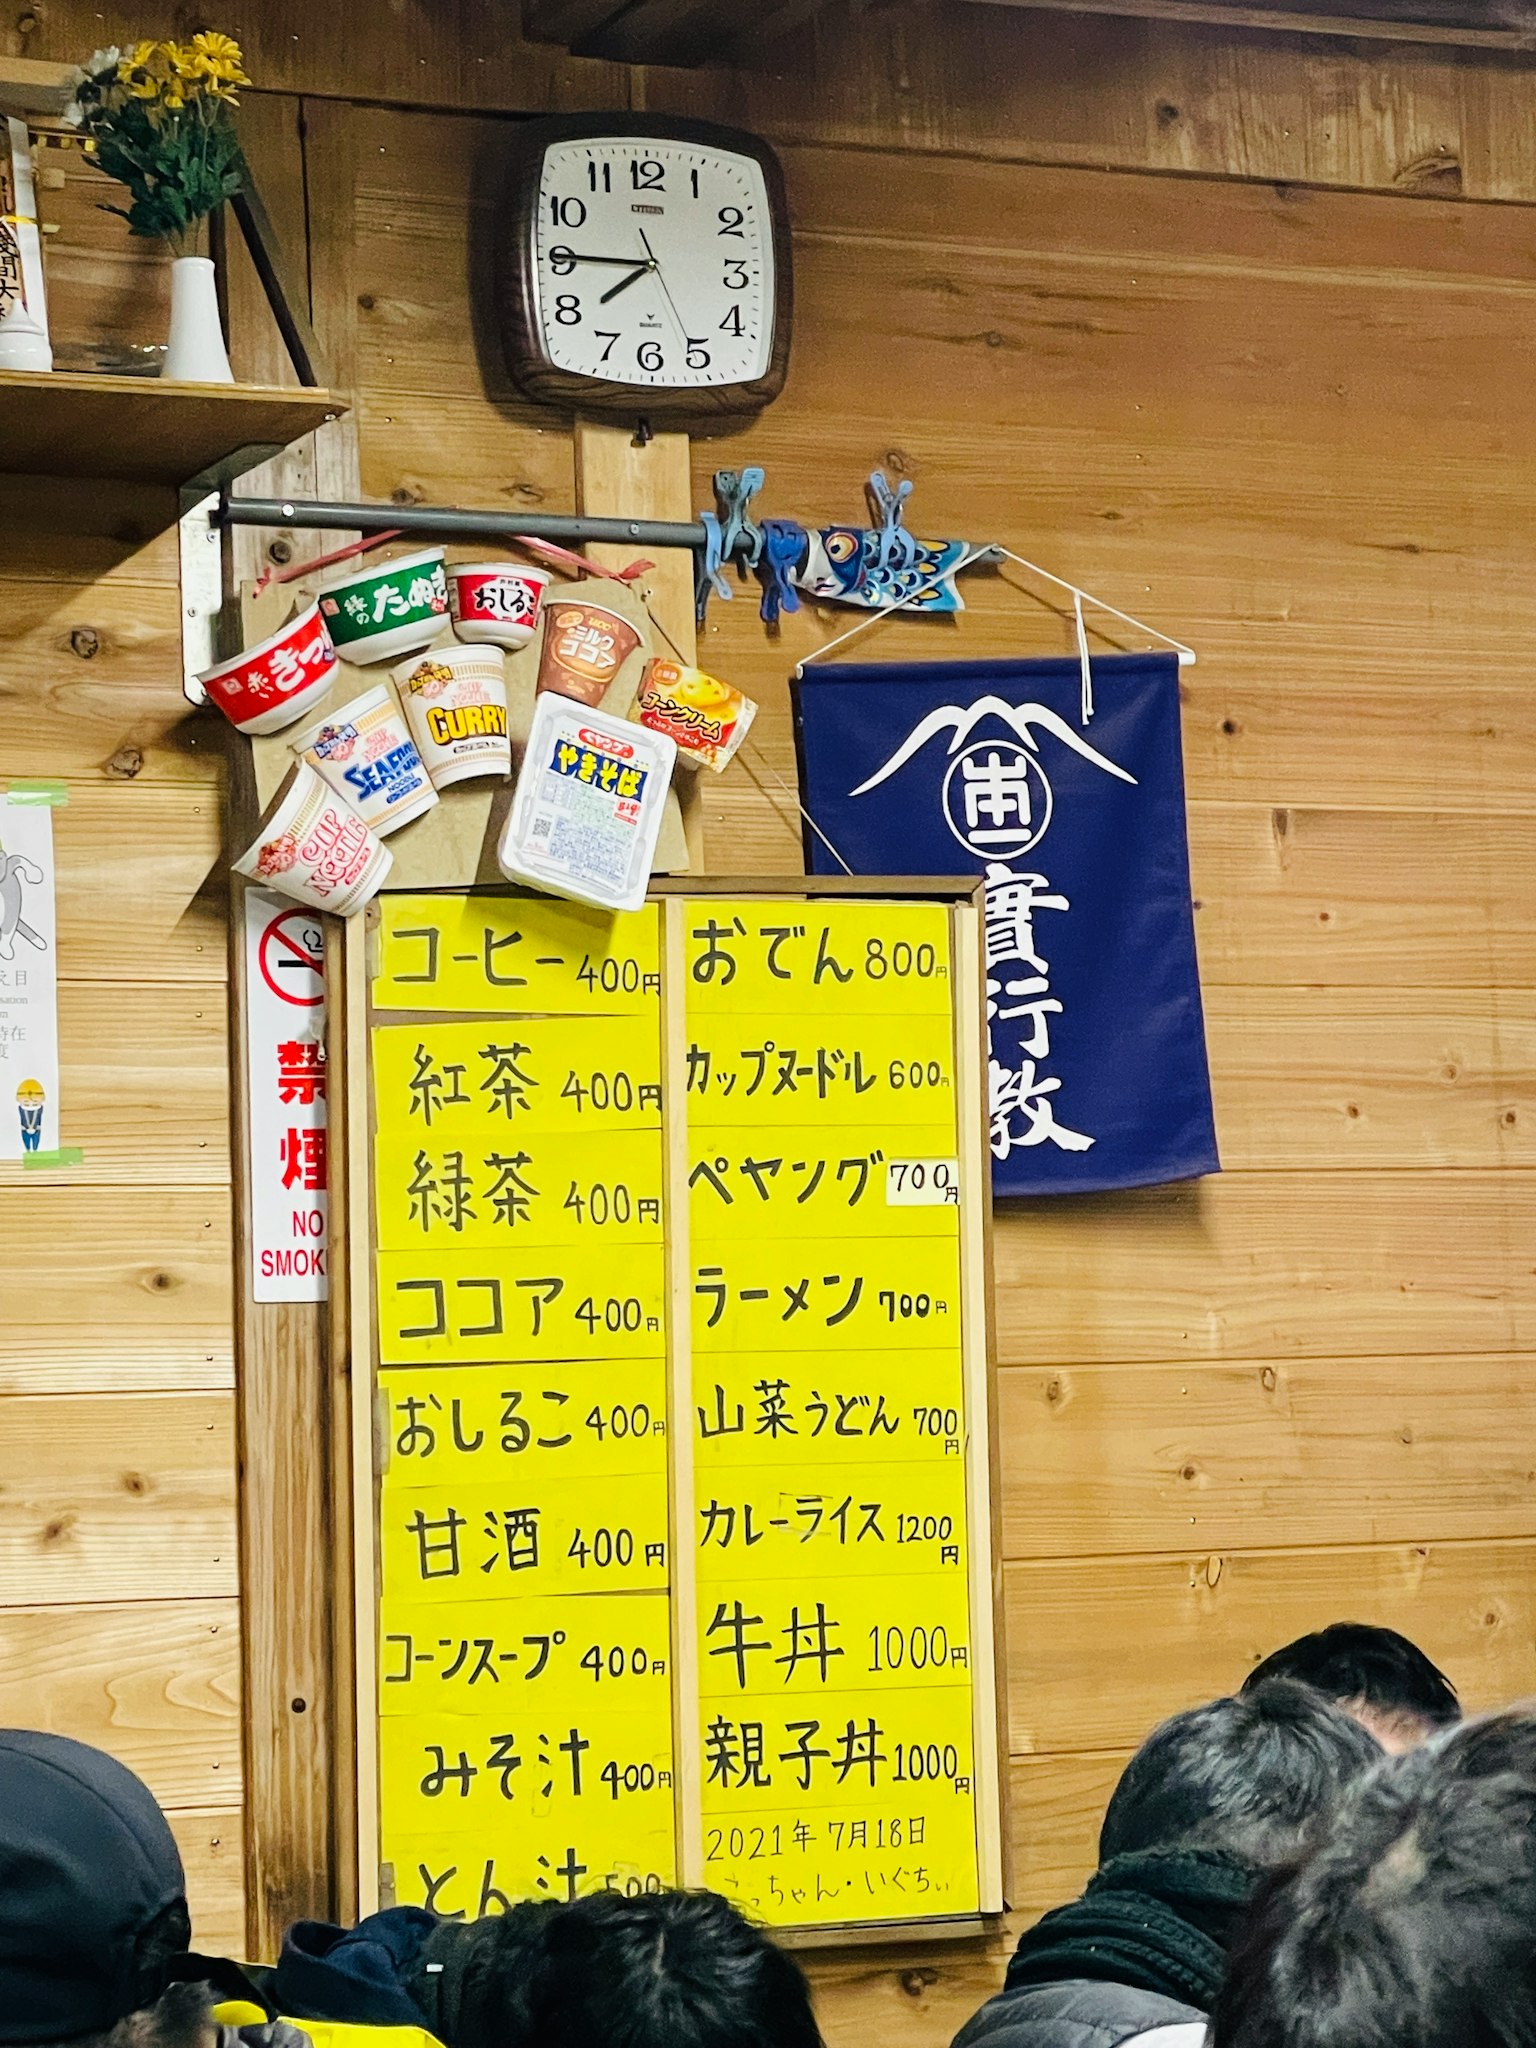 11 12 1
10 2
9 3
8 4
7 6 5
CITIZEN
QUARTZ
緑のたぬき
おしるこ
赤いきつ
UCC
ミルクココア
コーンクリーム
CURRY
SEAFOOD
NOODLE
CUP NOODLE
ペヤング
やきそば
實行教
禁煙
NO
SMOK
コーヒー 400円
紅茶 400円
緑茶 400円
ココア 400円
おしるこ 400円
甘酒 400円
コーンスープ 400円
みそ汁 400円
とん汁 500
おでん 800円
カップヌードル 600円
ペヤング 700円
ラーメン 700円
山菜うどん 700円
カレーライス 1200円
牛丼 1000円
親子丼 1000円
2021年7月18日
っちゃん・いぐちぃ